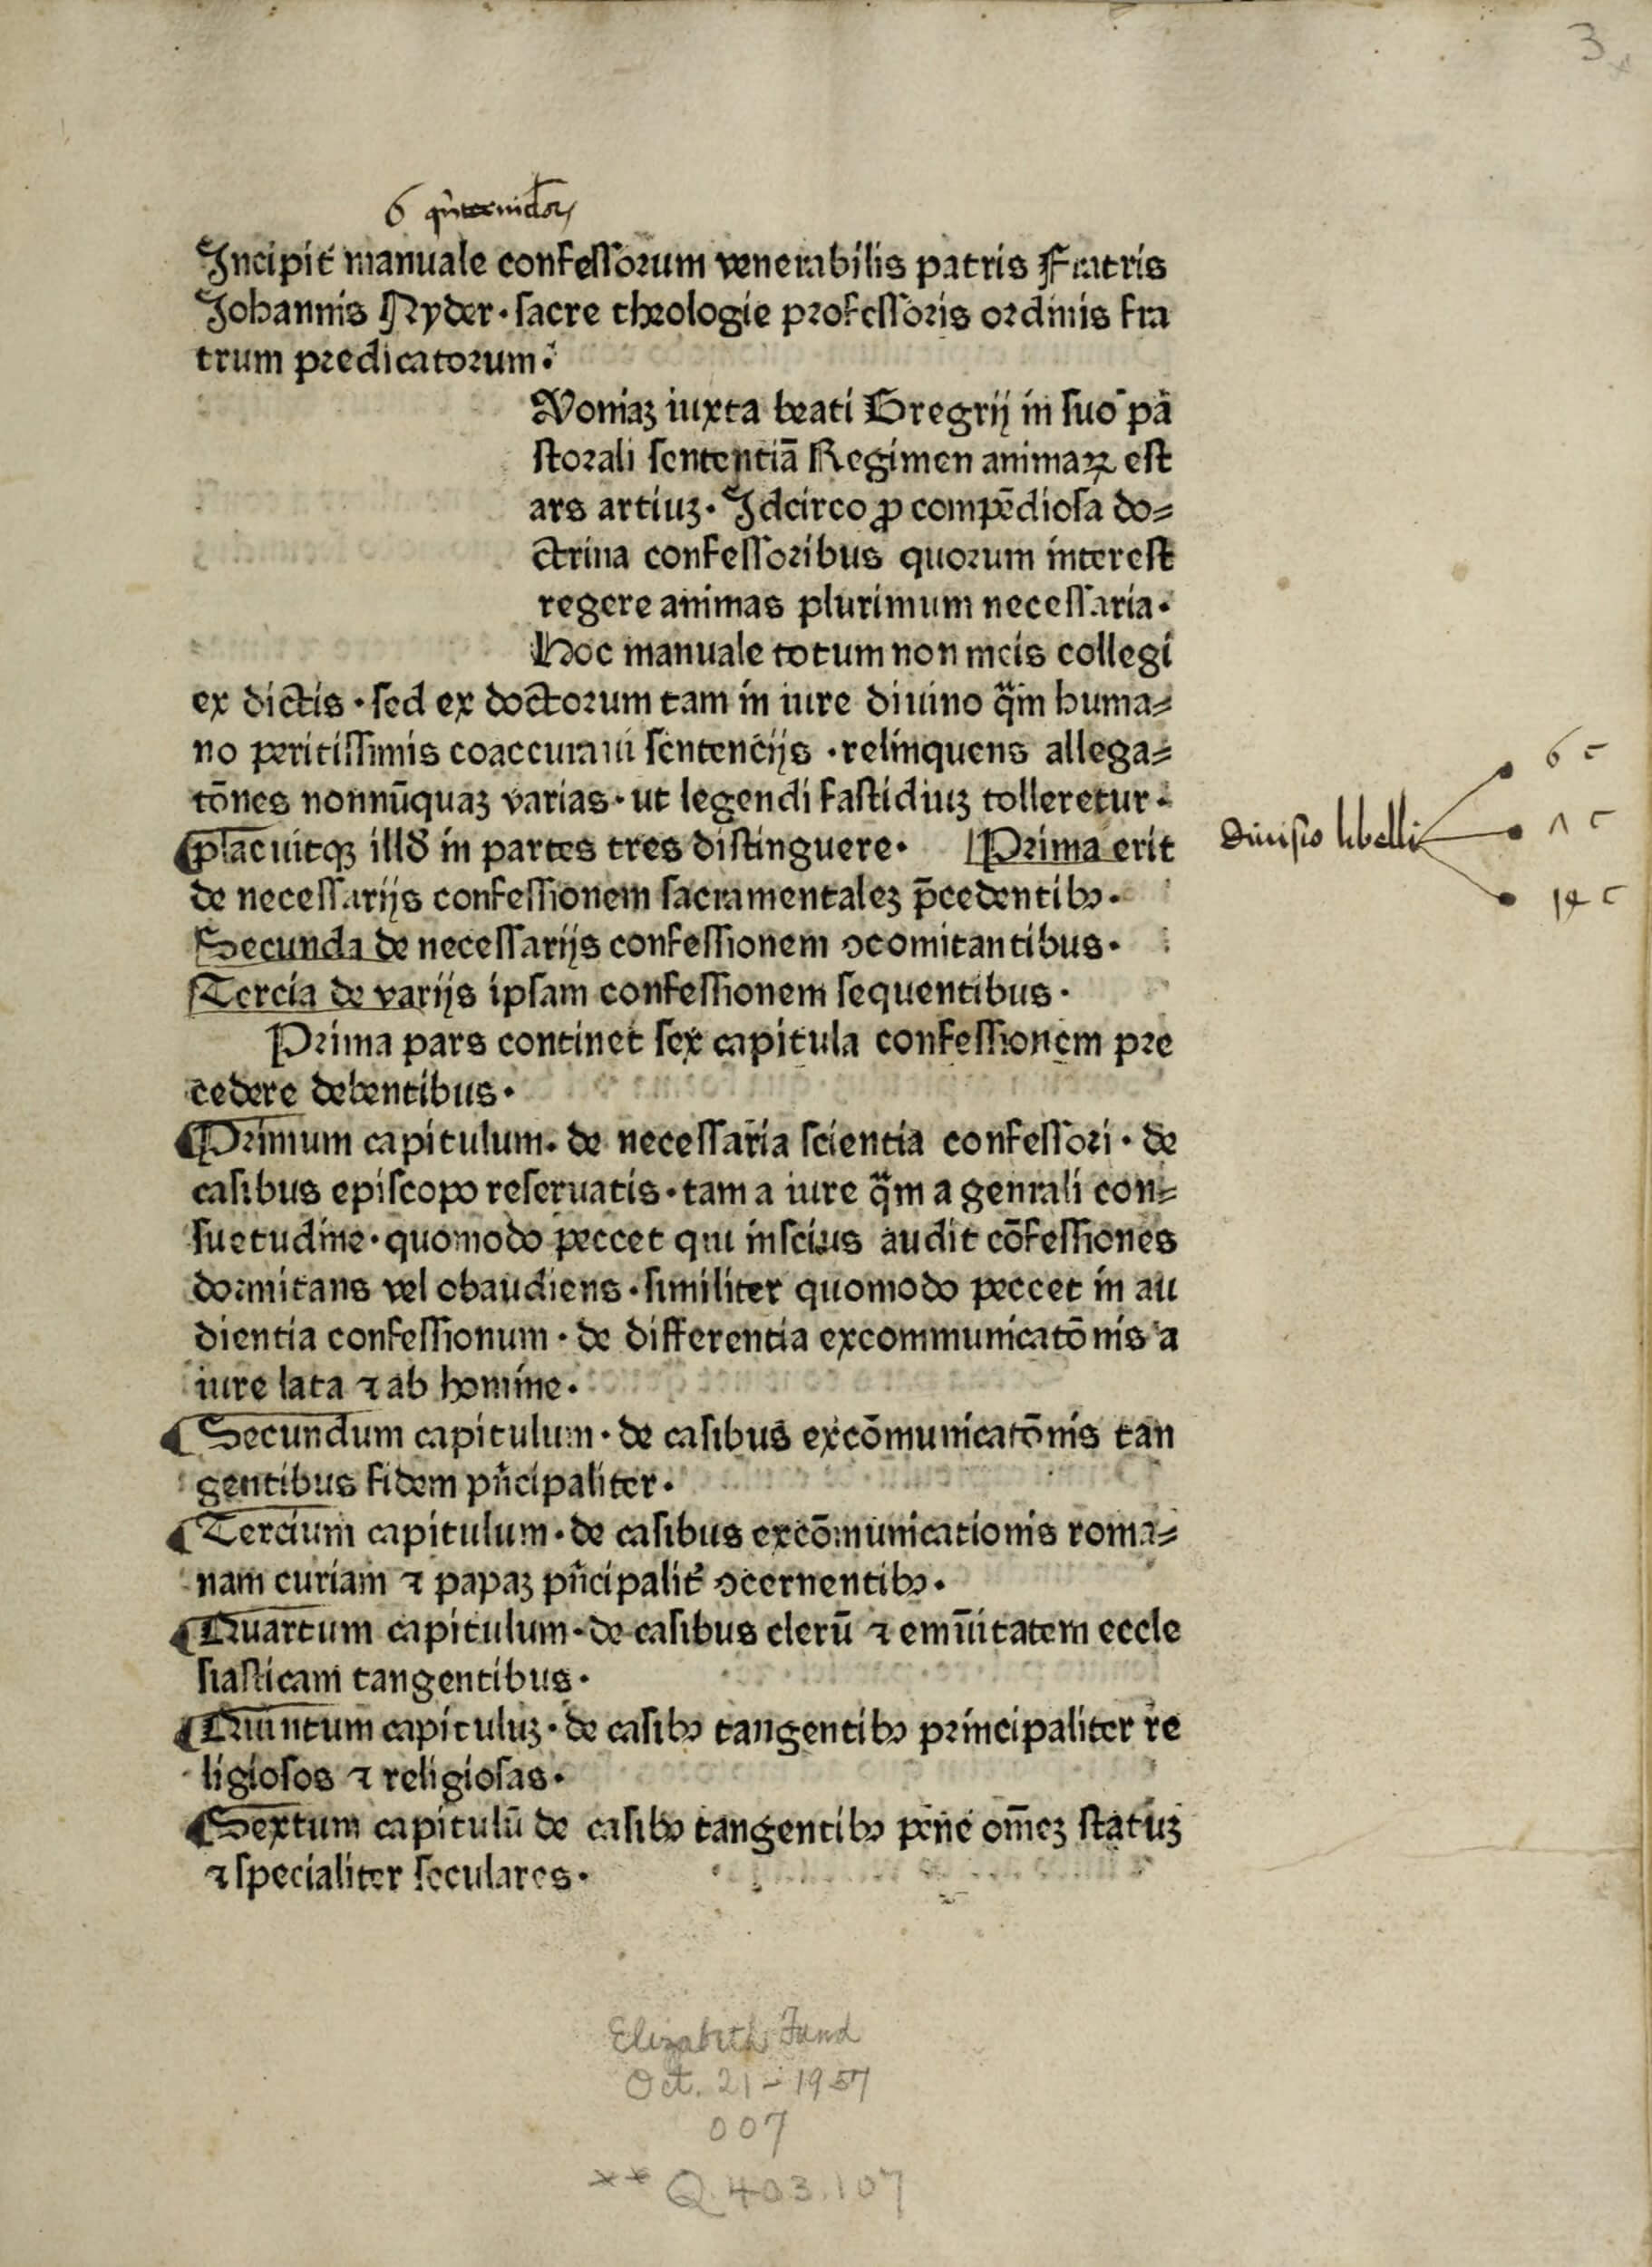 3
6
Incipit manuale confeſſoꝛum venerabilis patris Fratris
Johannis Nyder · ſacre theologie pꝛofeſſoꝛis oꝛdinis fra
trum pꝛedicatoꝛum ·
Voniaꝫ iuxta beati Gregrij in ſuo pa
ſtoꝛali ſententiā Regimen animaꝝ eſt
ars artiuꝫ · Idcirco ꝓ compēdioſa do⸗
ctrina confeſſoꝛibus quoꝛum intereſt
regere animas plurimum neceſſaria ·
Hoc manuale totum non meis collegi
ex dictis · ſed ex doctoꝛum tam in iure diuino qᷓm huma⸗
no peritiſſimis coaccuraui ſentencijs · relinquens allega⸗
tōnes nonnūquaꝫ varias · ut legendi faſtidiuꝫ tolleretur ·
placuitqꝫ illd̕ in partes tres diſtinguere · Pꝛima erit
de neceſſarijs confeſſionem ſacramentaleꝫ p̄cedentibꝰ ·
Secunda de neceſſarijs confeſſionem ꝯcomitantibus ·
Tercia de varijs ipſam confeſſionem ſequentibus ·
Pꝛima pars continet ſex capitula confeſſionem pꝛe
cedere debentibus ·
Pꝛimum capitulum · de neceſſaria ſcientia confeſſoꝛi · de
caſibus epiſcopo reſeruatis · tam a iure qᷓm a genrali con⸗
ſuetudine · quomodo peccet qui inſcius audit cōfeſſiones
doꝛmitans vel obaudiens · ſimiliter quomodo peccet in au
dientia confeſſionum · de differentia excommunicatōnis a
iure lata ⁊ ab homine ·
Secundum capitulum · de caſibus excōmunicatōnis tan
gentibus fidem pn̄cipaliter ·
Tercium capitulum · de caſibus excōmunicationis roma⸗
nam curiam ⁊ papaꝫ pn̄cipalit̕ ꝯcernentibꝰ ·
Quartum capitulum · de caſibus clerū ⁊ emūitatem eccle
ſiaſticam tangentibus ·
Quintum capituluꝫ · de caſibꝰ tangentibꝰ pꝛincipaliter re
ligioſos ⁊ religioſas ·
Sextum capitulū de caſibꝰ tangentibꝰ pene om̄eꝫ ſtatuꝫ
⁊ ſpecialiter ſeculares ·
diuiſio libelli
6 c
Λ c
14 c
Elizabeth Fund
Oct. 21 - 1957
007
** Q.403.107